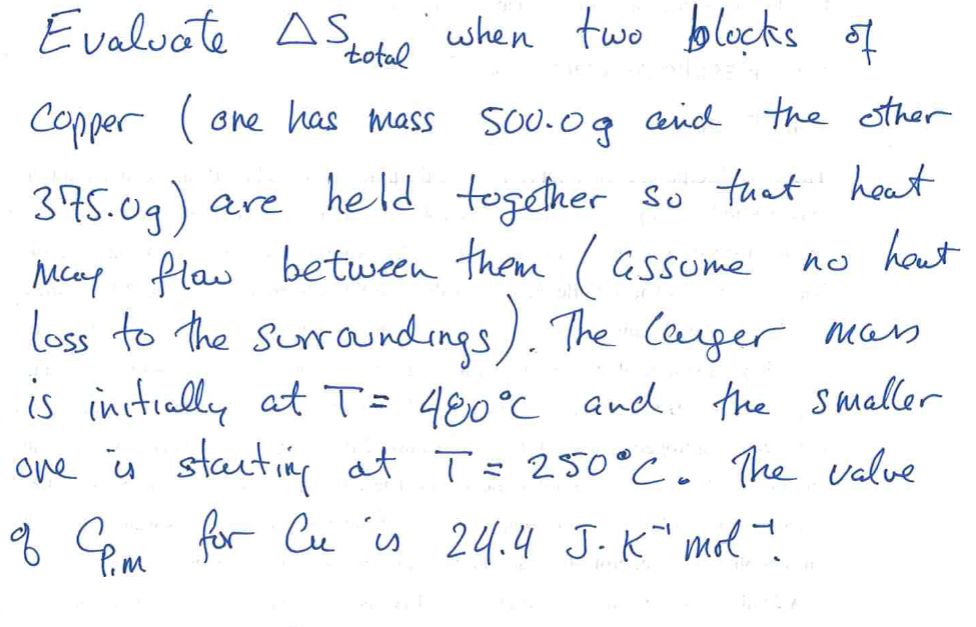 Evaluate ΔS_total when two blocks of
Copper (one has mass 500.0g and the other
375.0g) are held together so that heat
may flow between them (assume no heat
loss to the surroundings). The larger mass
is initially at T = 480°C and the smaller
one is starting at T = 250°C. The value
of C_P,m for Cu is 24.4 J·K⁻¹ mol⁻¹.